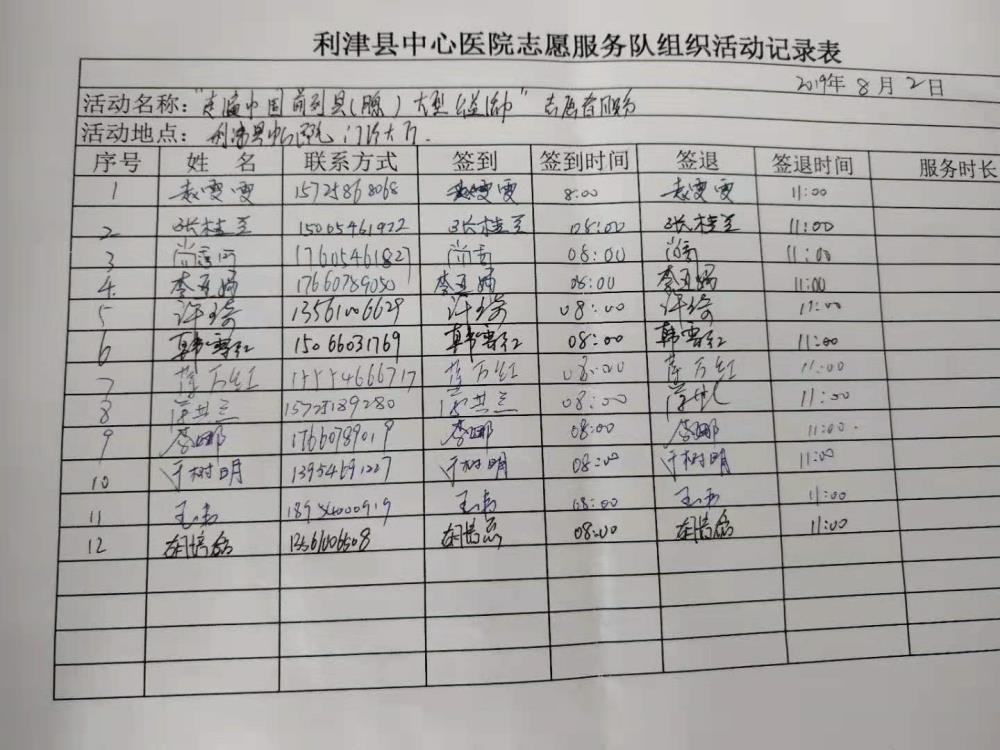 利津县中心医院志愿服务队组织活动记录表
2019年 8 月 2 日
活动名称："走遍中国前列县(腺)大型公益活动"志愿者服务
活动地点：利津县中心医院门诊大厅.
序号 姓 名 联系方式 签到 签到时间 签退 签退时间 服务时长
1 15725868068 8:00 11:00
2 张桂兰 15005461922 张桂兰 08:00 张桂兰 11:00
3 17605461827 08:00 11:00
4. 17660789050 08:00 11:00
5 许琦 13561006629 许琦 08:00 许琦 11:00
6 韩雪红 15066031769 韩雪红 08:00 韩雪红 11:00
7 薛万红 15554666717 薛万红 08:00 薛万红 11:00
8 15725189280 08:00 11:00
9 李娜 17660789019 李娜 08:00 李娜 11:00.
10 于树明 13954691227 于树明 08:00 于树明 11:00
11 18954000919 08:00 11:00
12 胡培磊 13561006508 胡培磊 08:00 胡培磊 11:00